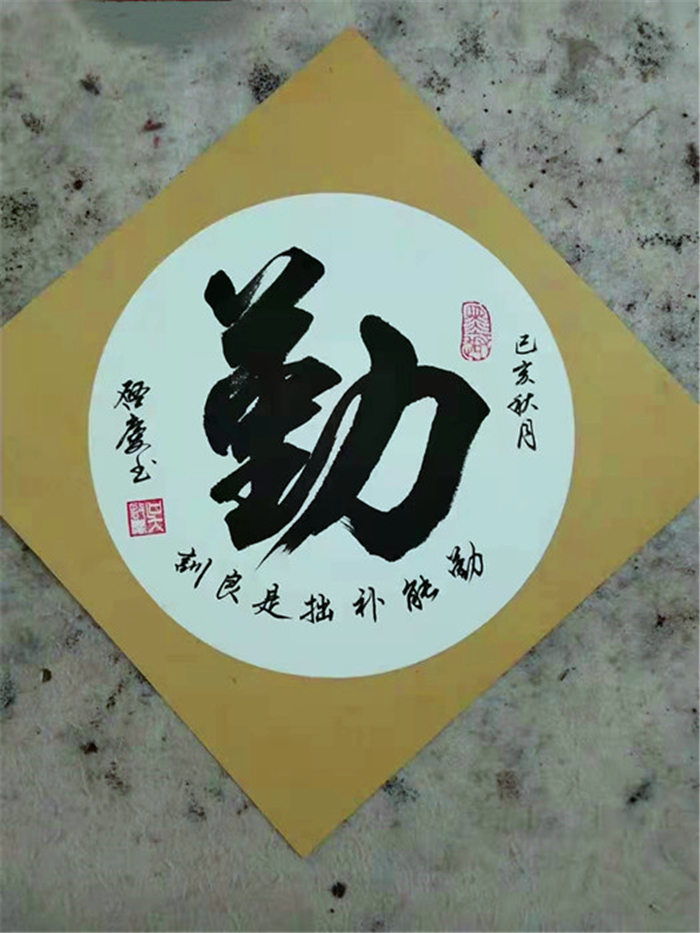 勤
己亥秋月
勤能补拙是良训
启庆书